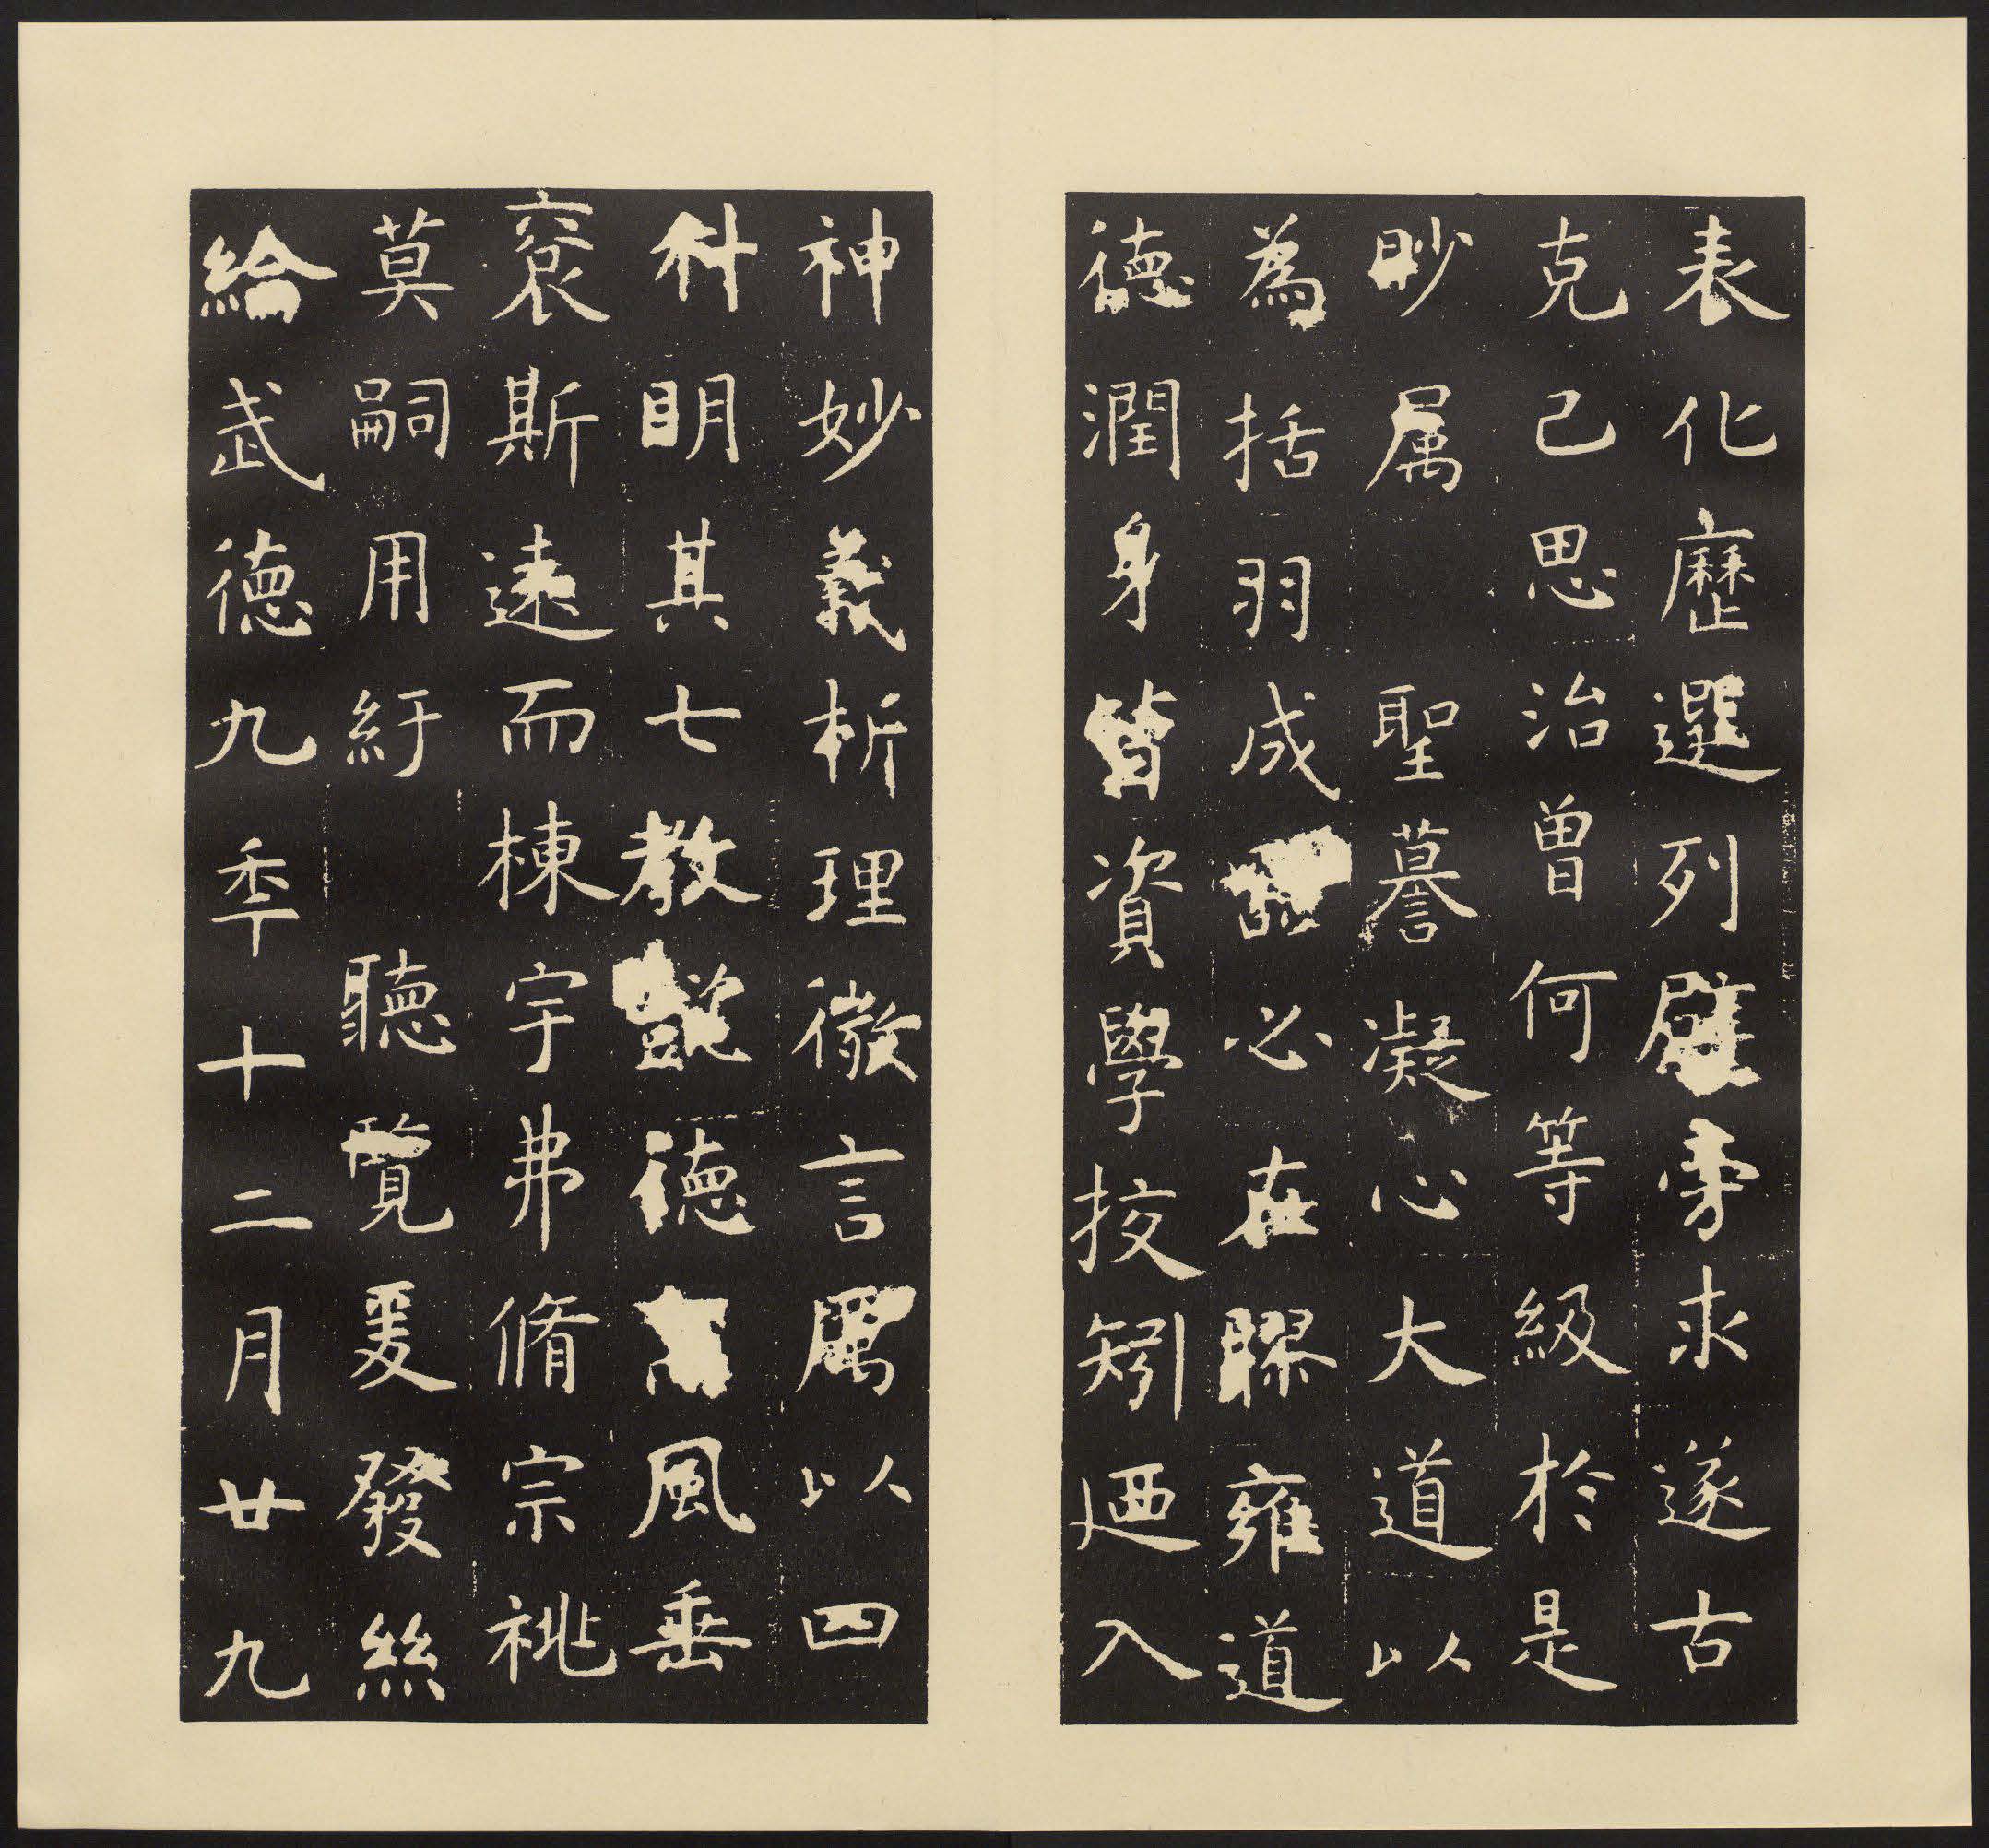 表化歷選列辟旁求遂古
克己思治曾何等級於是
眇属聖謩凝心大道以
為括羽成必在膠雍道
德潤身皆資學挍矧廼入
神妙義析理微言厲以四
科明其七教懿德風垂
裒斯遠而棟宇弗脩宗祧
莫嗣用紆聽覽爰發絲
給武德九秊十二月廿九